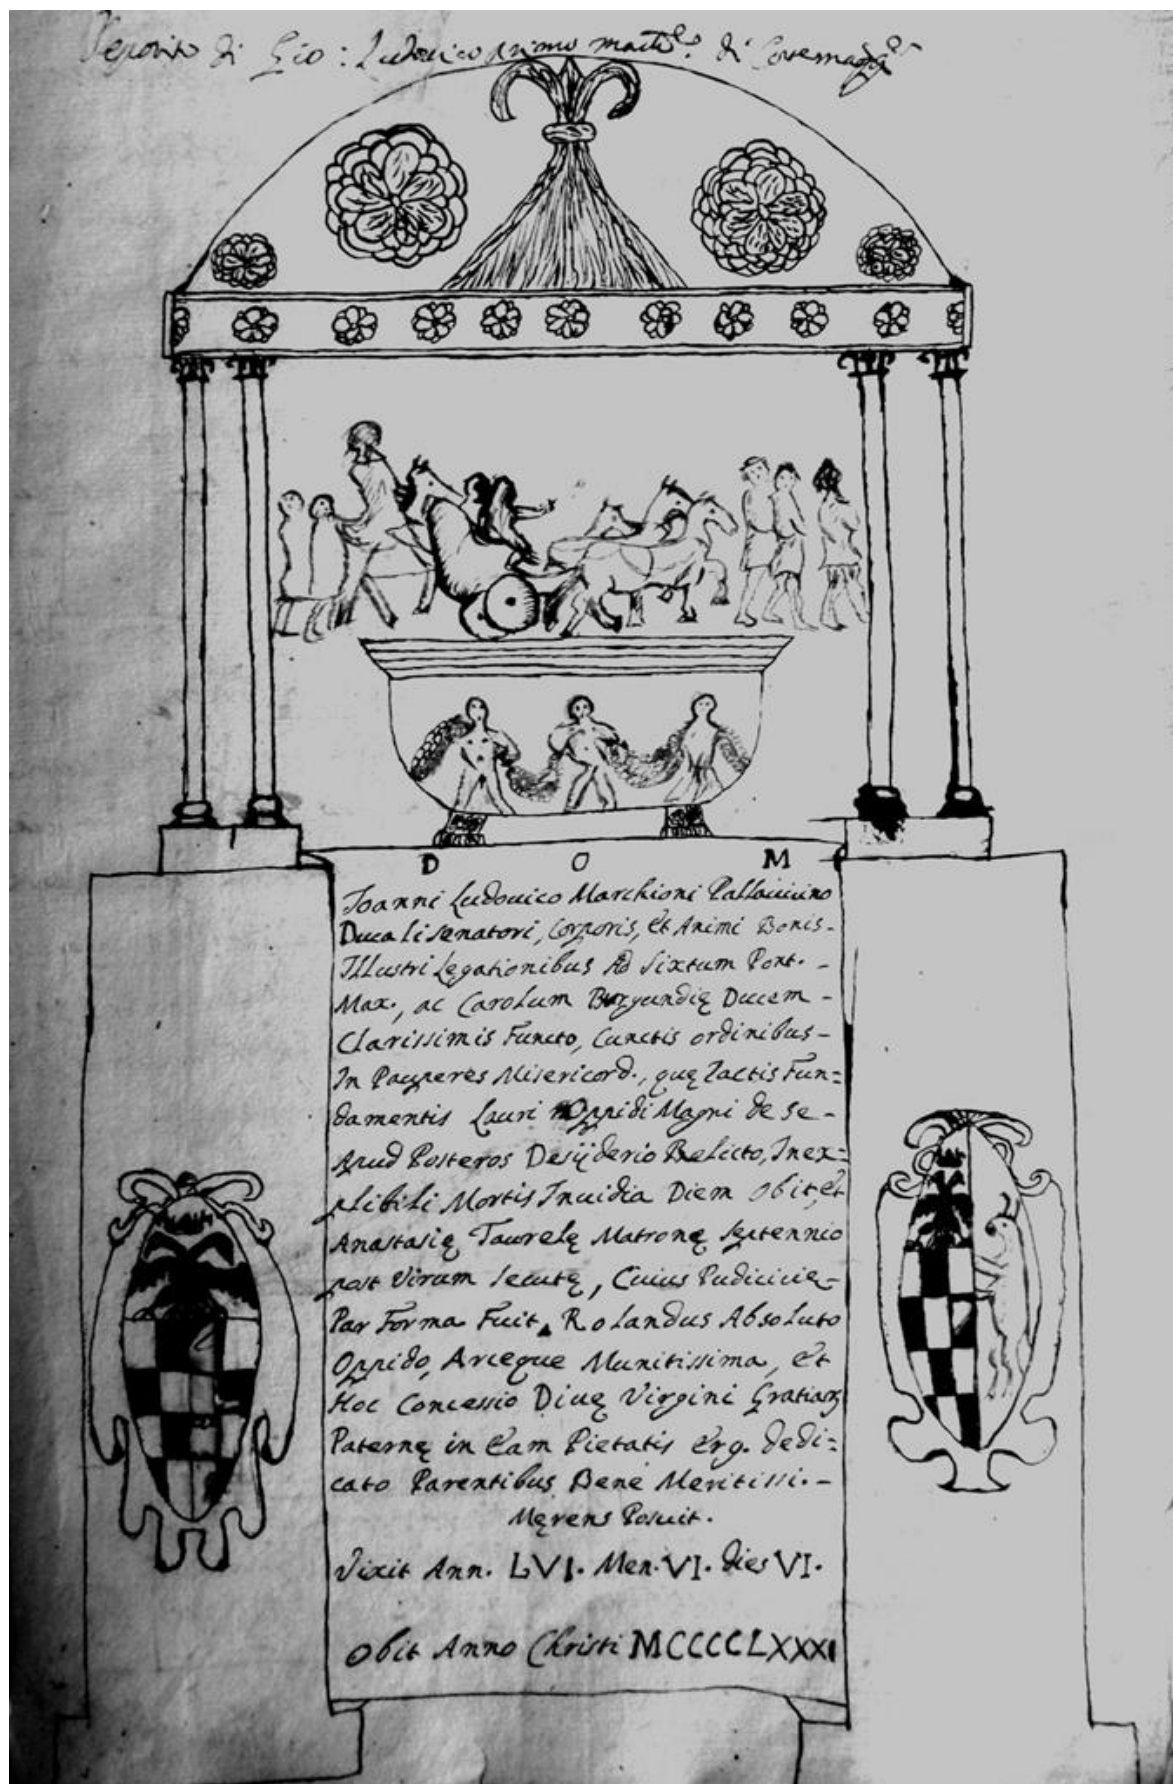 Deposito di Gio: Ludovico primo march.e di Cortemagg.re
D O M
Joanni Ludouico Marchioni Pallauicino
Ducali senatori, Corporis, et Animi Bonis-
Illustri Legationibus Ad Sixtum Pont.-
Max., ac Carolum Burgundię Ducem-
Clarissimis Functo, Cunctis ordinibus-
In Pauperes Misericord., quę Iactis Fun=
damentis Lauri Oppidi Magni de se-
Apud Posteros Desijderio Relicto, Inex=
plibili Mortis Inuidia Diem Obit, et
Anastasię Taurelę Matronę septennio
post Virum secutę, Cuius Pudicicię-
Par Forma Fuit, Rolandus Absoluto
Oppido, Arceque Munitissima, et
Hoc Concessio Diuę Virgini Gratiarz
Paternę in Eam Pietatis Erg. dedi=
cato Parentibus Bene Meritissi.-
Męrens Posuit.
Vixit Ann. LVI. Men. VI. dies VI.
Obit Anno Christi MCCCCLXXXI